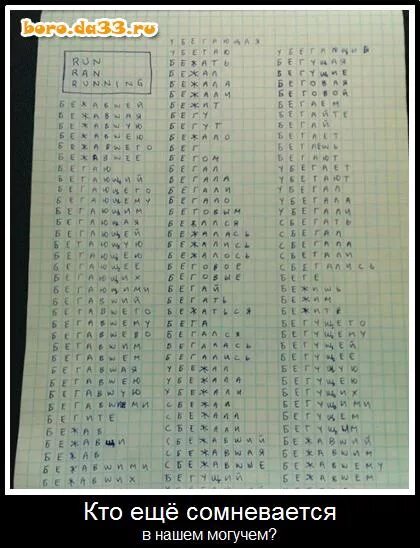 boro.da33.ru
RUN
RAN
RUNNING
БЕЖАВШЕЙ
БЕЖАВШАЯ
БЕЖАВШУЮ
БЕЖАВШЕЮ
БЕЖАВШЕГО
БЕЖАВШЕЕ
БЕГАЮ
БЕГАЮЩИЙ
БЕГАЮЩЕГО
БЕГАЮЩЕМУ
БЕГАЮЩИМ
БЕГАЮЩАЯ
БЕГАЮЩЕЙ
БЕГАЮЩУЮ
БЕГАЮЩЕЮ
БЕГАЮЩЕЕ
БЕГАЮЩИХ
БЕГАЮЩИМИ
БЕГАВШИЙ
БЕГАВШЕГО
БЕГАВШЕМУ
БЕГАВШИМ
БЕГАВШЕМ
БЕГАВШАЯ
БЕГАВШЕЮ
БЕГАВШУЮ
БЕГАВШИМИ
БЕГИТЕ
БЕЖАВ
БЕЖАВШИ
БЕЖАВ
БЕЖАВШИМИ
БЕЖАВШИХ
УБЕГАЮЩАЯ
УБЕГАЮ
БЕЖАТЬ
БЕЖАЛ
БЕЖАЛА
БЕЖАЛИ
БЕЖИТ
БЕГУ
БЕГУТ
БЕЖАЛО
БЕГ
БЕГОМ
БЕГАЛ
БЕГАЛА
БЕГАЛИ
БЕГАЛО
БЕГОВЫМ
БЕЖАЛСЯ
БЕЖАЛАСЬ
БЕЖАЛИСЬ
БЕЖАЛОСЬ
БЕГОВОЕ
БЕГОВЫЕ
БЕГАЙ
БЕГАТЬ
БЕЖАТЬСЯ
БЕГА
БЕГАЛСЯ
БЕГАЛАСЬ
БЕГАЛИСЬ
УБЕЖАЛ
УБЕЖАЛА
УБЕЖАЛИ
СБЕЖАЛ
СБЕЖАЛА
СБЕЖАЛИ
СБЕЖАВШИЙ
СБЕЖАВШАЯ
СБЕЖАВШИЕ
БЕГУЩИЙ
УБЕГАЮЩИЙ
БЕГУЩАЯ
БЕГУЩИЕ
БЕГОВАЯ
БЕГОВОЙ
БЕГАЕМ
БЕГАЙТЕ
БЕГАЙ
БЕГАЕТ
БЕГАЕШЬ
БЕГАЮТ
УБЕГАЕТ
УБЕГАЮТ
УБЕГАЛ
УБЕГАЛА
УБЕГАЛИ
СБЕГАТЬ
СБЕГАЛ
СБЕГАЛА
СБЕГАЛИ
СБЕГАЛИСЬ
БЕГЕ
БЕЖИШЬ
БЕЖИМ
БЕЖИТЕ
БЕГУЩЕГО
БЕГУЩЕМУ
БЕГУЩЕЙ
БЕГУЩЕЕ
БЕГУЩУЮ
БЕГУЩЕЮ
БЕГУЩИХ
БЕГУЩИМИ
БЕГУЩЕМ
БЕГУЩЫМ
БЕЖАВШИЙ
БЕЖАВШИМ
БЕЖАВШЕМУ
БЕЖАВШЕМ
Кто ещё сомневается
в нашем могучем?